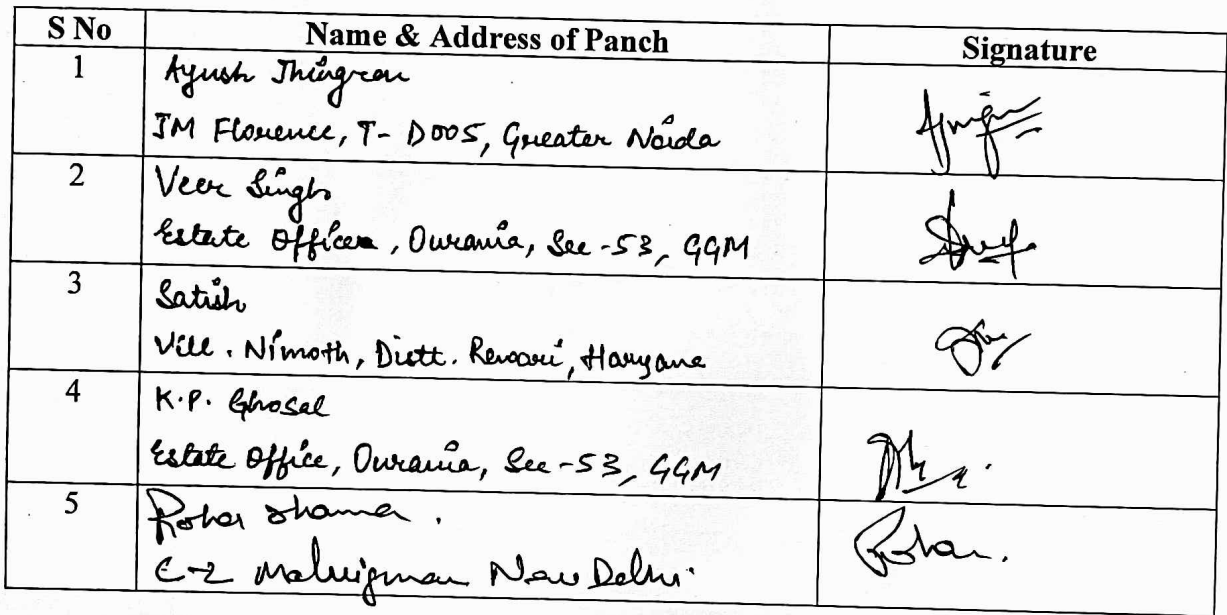 S No Name & Address of Panch Signature
1 Ayush Jhingran
JM Florence, T- D005, Greater Noida
2 Veer Singh
Estate Office, Ourania, Sec -53, GGM
3 Satish
Vill. Nimoth, Distt. Rewari, Haryana
4 K.P. Ghosal
Estate Office, Ourania, Sec -53, GGM
5 Sharma.
New Delhi.